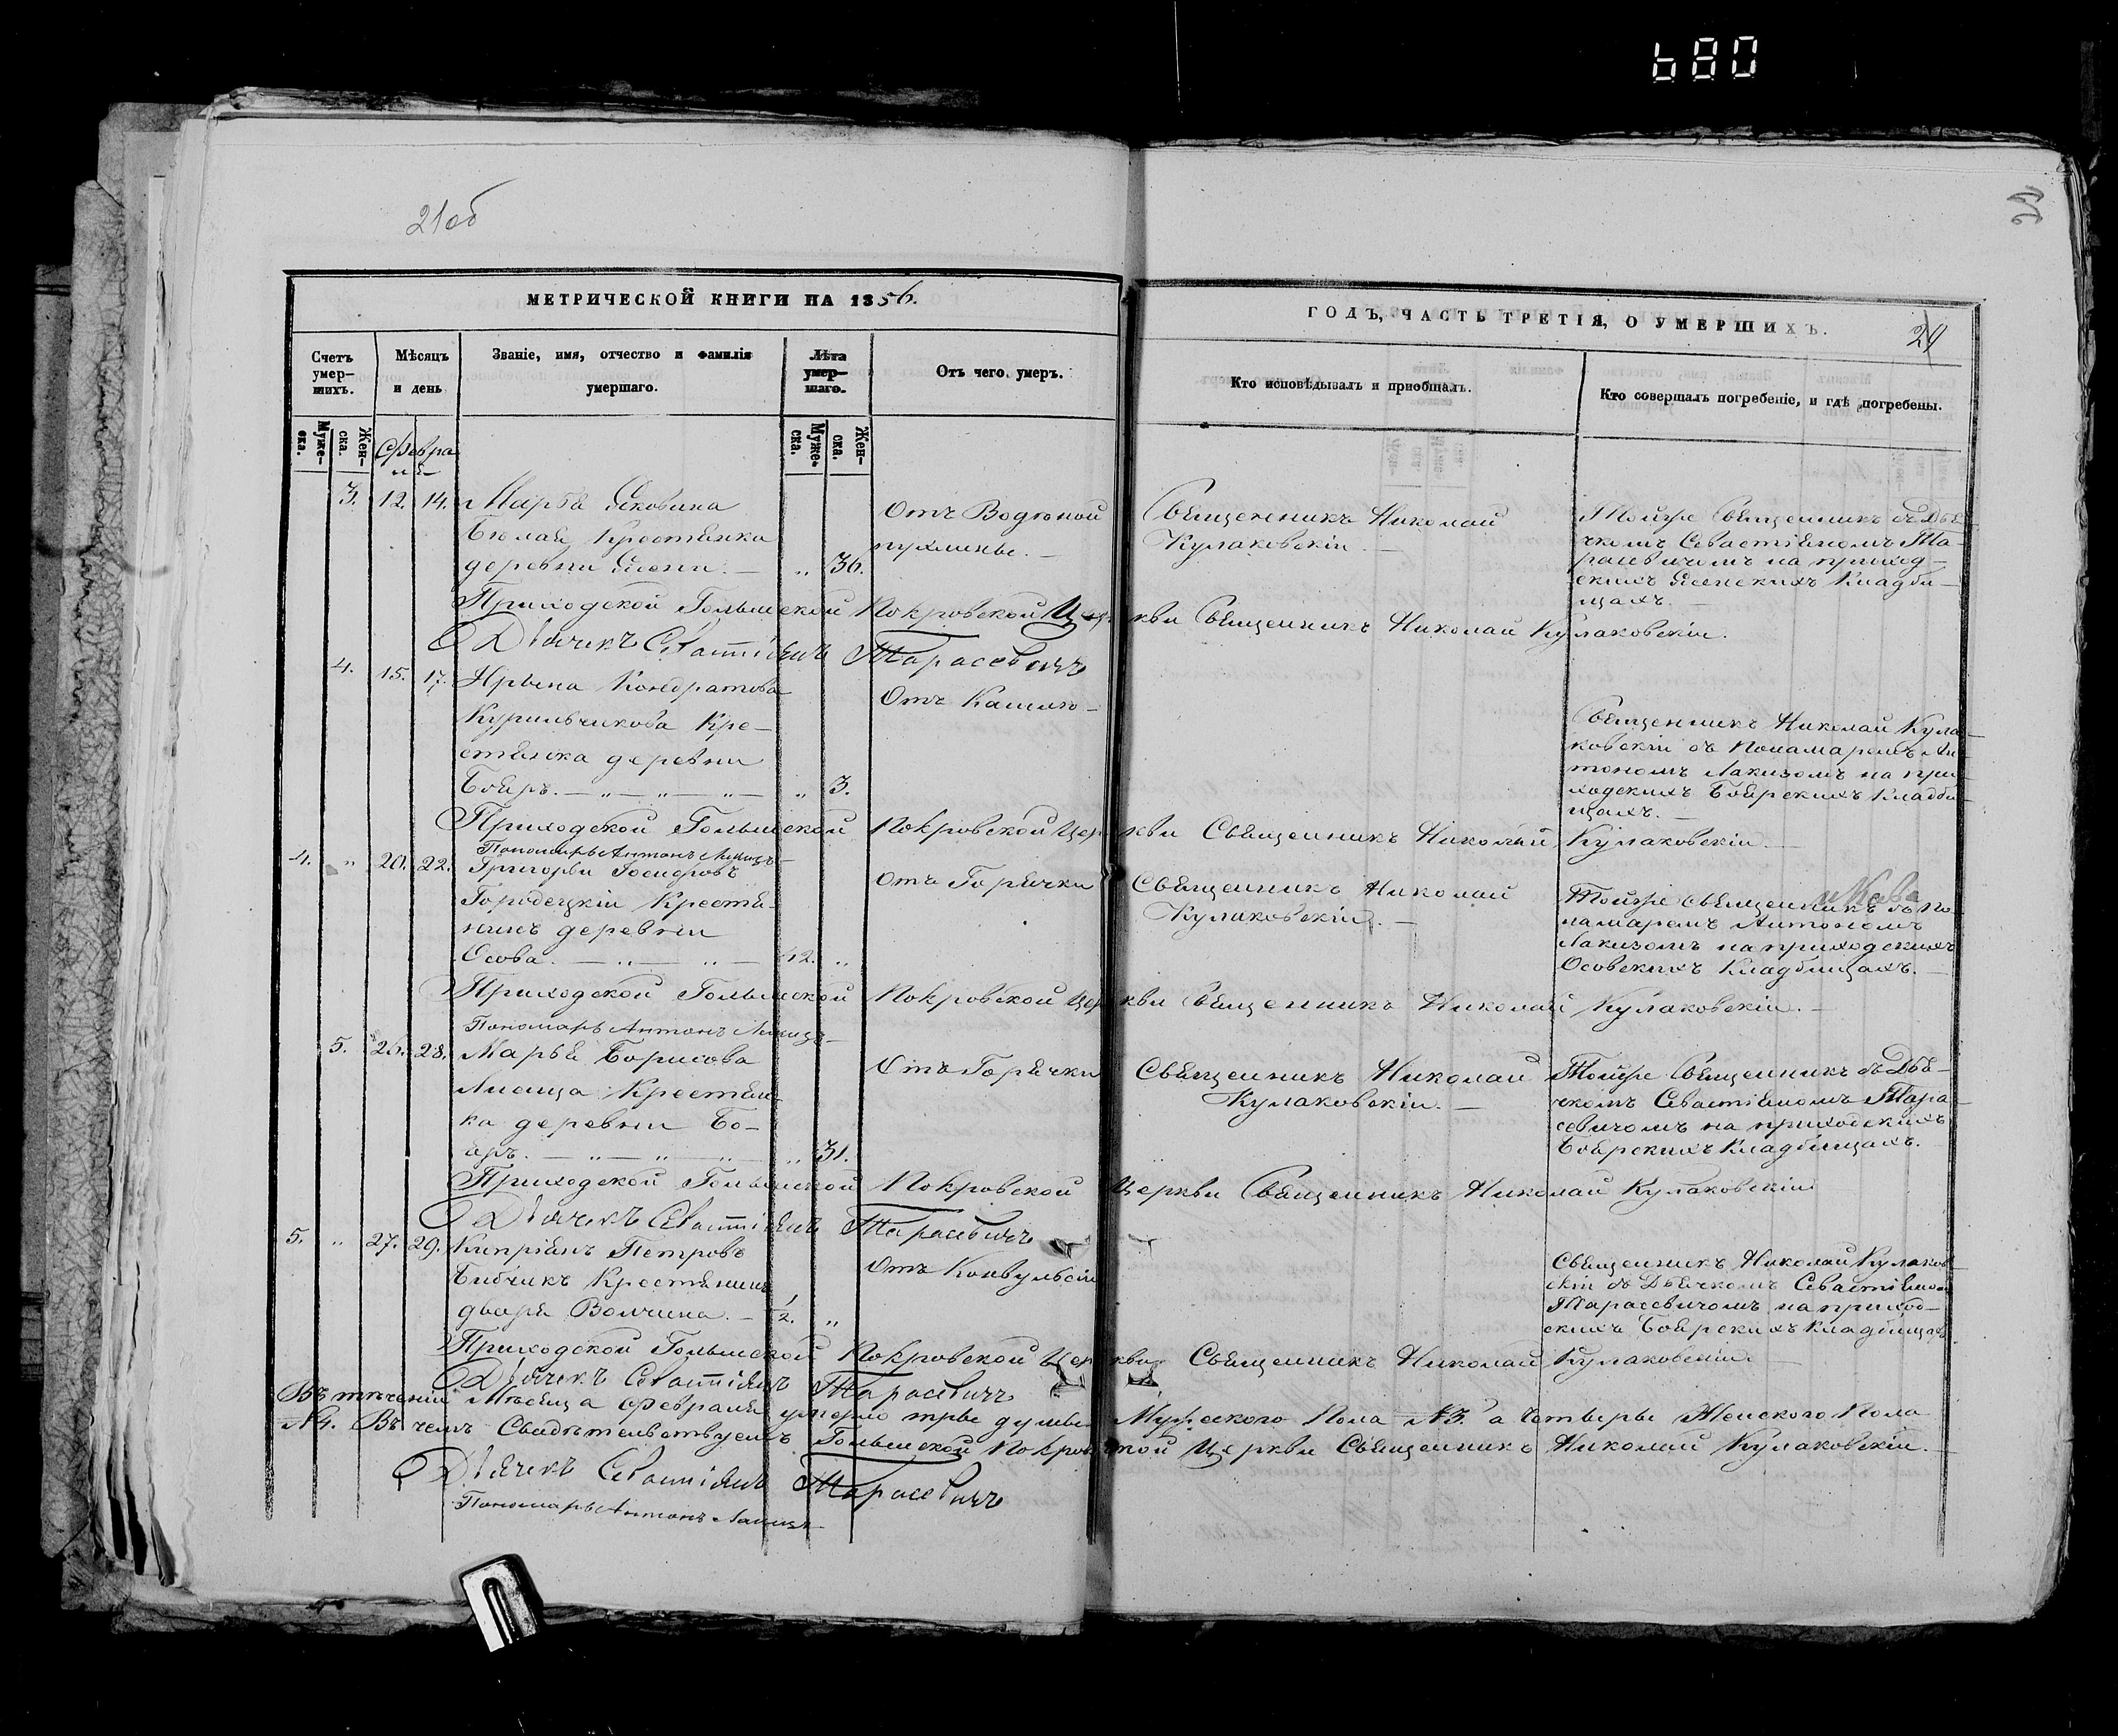 680
21об
22
МЕТРИЧЕСКОЙ КНИГИ НА 1856.
ГОДЪ, ЧАСТЬ ТРЕТІЯ, О УМЕРШИХЪ.
Счетъ умер-шихъ.
Мѣсяцъ и день
Званіе, имя, отчество и фамилія умершаго.
Лѣта умер-шаго.
Отъ чего умеръ.
Кто исповѣдывалъ и пріобщалъ.
Кто совершалъ погребеніе, и гдѣ погребены.
Муже-ска.
Жен-ска.
Муже-ска.
Жен-ска.
Февра
ля
3. 12. 14. Марѳа Яковина
Бѣлая Крестьянка
деревни Ясени. — „ 36.
Отъ Водяной
пухлины. —
Священникъ Николай
Кулаковскій. —
Тойже Священникъ съ Дья-
чкомъ Севастіяномъ Та-
расевичомъ на приход-
скихъ Ясенскихъ Кладби-
щахъ. —
Приходской Голынской Покровской Церкви Священникъ Николай Кулаковскій.
Дьячекъ Севастіянъ Тарасевичъ
4. 15. 17. Ирына Кондратова
Курильчикова Кре-
стьянка деревни
Бояръ. — „ — „ — „ — „ 3.
Отъ Кашлю —
Священникъ Николай Кула-
ковскій съ Понамаремъ Ан-
тономъ Лакизомъ на при-
ходскихъ Боярскихъ Кладби-
щахъ. —
Приходской Голынской Покровской Церкви Священникъ Николай Кулаковскій. —
Пономарь Антонъ Лакизъ
4. „ 20. 22. Григорій Іосифовъ
Городецкій Крестья-
нинъ деревни
Осова. — „ — „ — 42. „
Отъ Горячки
Священникъ Николай
Кулаковскій. —
Тойже Священникъ съ По-
намаремъ Антономъ
Лакизомъ на приходскихъ
Осовскихъ Кладбищахъ. —
Приходской Голынской Покровской Церкви Священникъ Николай Кулаковскій. —
Пономарь Антонъ Лакизъ
5. 26. 28. Марья Борисова
Лисица Крестьян-
ка деревни Бо-
яръ. — „ — „ — „ — „ 31.
Отъ Горячки
Священникъ Николай
Кулаковскій. —
Тойже Священникъ съ Дья-
чкомъ Севастіяномъ Тара-
севичомъ на приходскихъ
Боярскихъ Кладбищахъ.
Приходской Голынской Покровской Церкви Священникъ Николай Кулаковскій
Дьячекъ Севастіянъ Тарасевичъ
5. „ 27. 29. Кипріянъ Петровъ
Бибчикъ Крестьянинъ
двора Волчина. — 1/2. „
Отъ Конвульсіи
Священникъ Николай Кулаков-
скій съ Дьячкомъ Севастіяномъ
Тарасевичомъ на приход-
скихъ Боярскихъ Кладбищахъ
Приходской Голынской Покровской Церкви Священникъ Николай Кулаковскій. —
Дьячекъ Севастіянъ Тарасевичъ
Въ теченіи Мѣсяца Февраля умерло тры душы Мужеского Пола №3. а Четыры Женского Пола
№4. Въ чемъ Свидѣтельствуемъ Голынской Покровской Церкви Священникъ Николай Кулаковскій. —
Дьячекъ Севастіянъ Тарасевичъ
Пономарь Антонъ Лакизъ